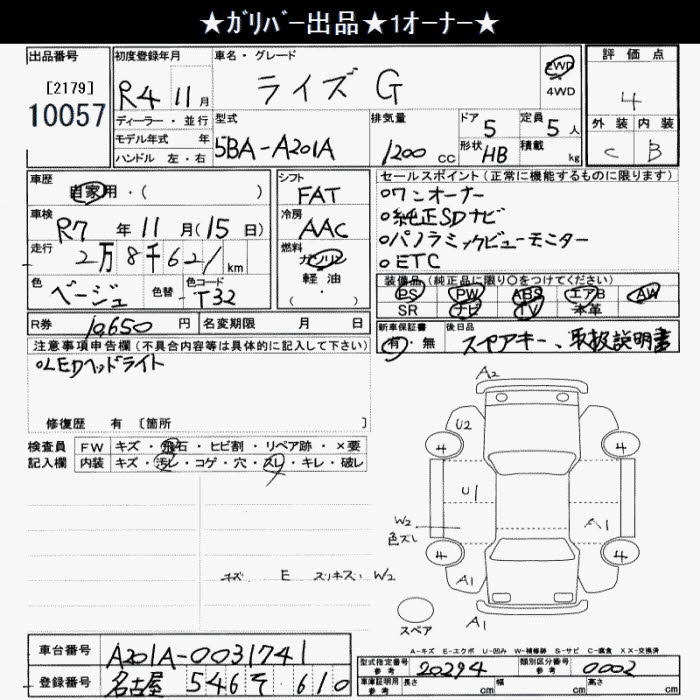 ★ｶﾞﾘﾊﾞｰ出品★1オーナー★
出品番号
[2179]
10057
初度登録年月
R4 11月
ディーラー・並行
モデル年式 年
ハンドル 左・右
車名・グレード
ライズ G
2WD
4WD
型式
5BA-A201A
排気量
1200 CC
ドア
5
形状
HB
定員
5人
積載
kg
評価点
4
外装 内装
C B
車歴
自家用・( )
車検
R7 年 11 月(15 日)
走行
2万8千621 km
色
ベージュ
色替
色コード
T32
シフト
FAT
冷房
AAC
燃料
ガソリン
軽油
( )
セールスポイント(正常に機能するものに限ります)
○ワンオーナー
○純正SDナビ
○パノラミックビューモニター
○ETC
装備品(純正品に限り○をつけてください)
PS PW ABS エアB AW
SR ナビ TV 本革
R券 10,650 円
名変期限 月 日
新車保証書
有・無
後日品
スペアキー、取扱説明書
注意事項申告欄(不具合内容等は具体的に記入して下さい)
○LEDヘッドライト
修復歴 有 [箇所 ]
検査員
記入欄
FW キズ・飛石・ヒビ割・リペア跡・×要
内装 キズ・汚レ・コゲ・穴・スレ・キレ・破レ
A2
U2
4 4
U1
A1
W2
色ズレ
4 4
A1
A1
スペア
キズ E スリキズ: W2
A-キズ E-エクボ U-凹み W-補修跡 S-サビ C-腐食 XX-交換済
車台番号
A201A-0031741
登録番号
名古屋 546 そ 610
型式指定番号
参考
20294
類別区分番号
参考
0002
車庫証明用
参考
長さ cm 幅 cm 高さ cm